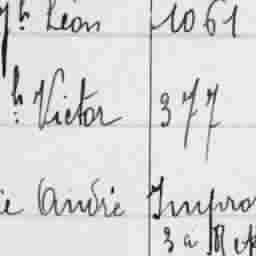 Jh Léon 1061
h: Victor 377
ie André Impro
3 a